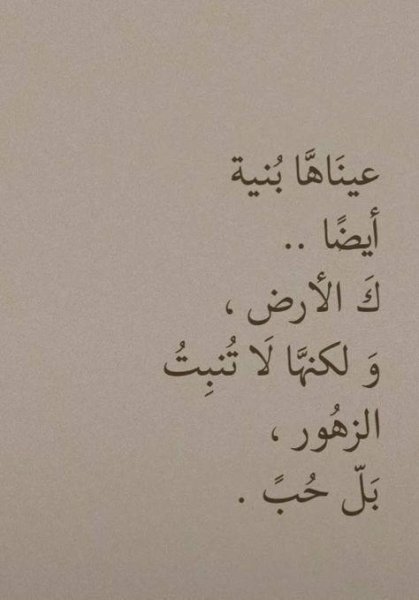 عينَاهَّا بُنية
أيضًا ..
كَ الأرض ،
وَ لكنهَّا لَا تُنبِتُ
الزهُور ،
بَلّ حُبً .